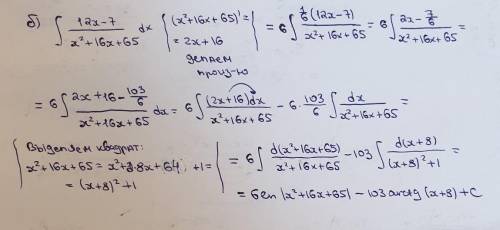 б) ∫ (12x-7)/(x²+16x+65) dx { (x²+16x+65)' = = 2x+16 делаем произ-ю } = 6∫ (1/6 (12x-7))/(x²+16x+65) = 6∫ (2x - 7/6)/(x²+16x+65) =
= 6∫ (2x+16 - 103/6)/(x²+16x+65) dx = 6∫ (2x+16)dx/(x²+16x+65) - 6·103/6 ∫ dx/(x²+16x+65) =
{ Выделяем квадрат:
x²+16x+65 = x²+2·8x+64; +1 =
= (x+8)²+1 } = 6∫ d(x²+16x+65)/(x²+16x+65) - 103∫ d(x+8)/((x+8)²+1) =
= 6 ln |x²+16x+65| - 103 arctg (x+8) + C